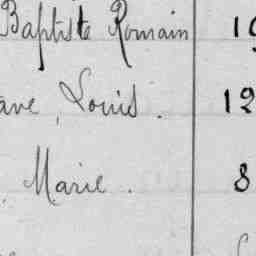 Baptiste Romain
Louis. 12
, Marie. 8